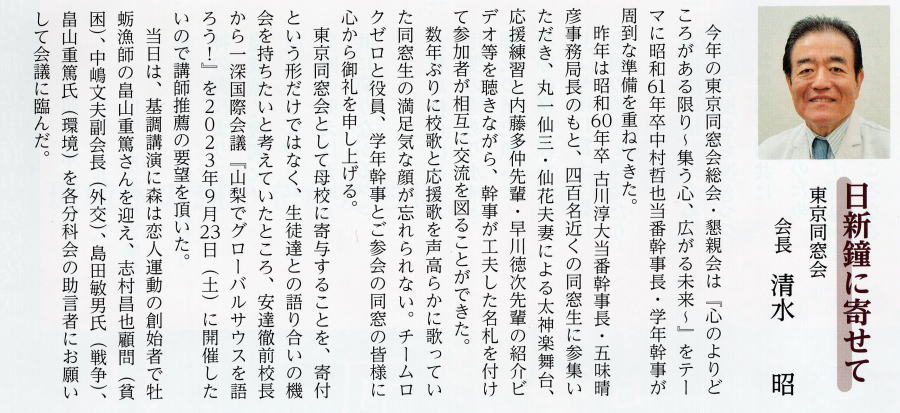 日新鐘に寄せて
東京同窓会
会長 清水 昭
今年の東京同窓会総会・懇親会は『心のよりど
ころがある限り～集う心、広がる未来～』をテー
マに昭和61年卒中村哲也当番幹事長・学年幹事が
周到な準備を重ねてきた。
昨年は昭和60年卒 古川淳大当番幹事長・五味晴
彦事務局長のもと、四百名近くの同窓生に参集い
ただき、丸一仙三・仙花夫妻による太神楽舞台、
応援練習と内藤多仲先輩・早川徳次先輩の紹介ビ
デオ等を聴きながら、幹事が工夫した名札を付け
て参加者が相互に交流を図ることができた。
数年ぶりに校歌と応援歌を声高らかに歌ってい
た同窓生の満足気な顔が忘れられない。チームロ
クゼロと役員、学年幹事とご参会の同窓の皆様に
心から御礼を申し上げる。
東京同窓会として母校に寄与することを、寄付
という形だけではなく、生徒達との語り合いの機
会を持ちたいと考えていたところ、安達徹前校長
から一深国際会議『山梨でグローバルサウスを語
ろう！』を2023年9月23日（土）に開催した
いので講師推薦の要望を頂いた。
当日は、基調講演に森は恋人運動の創始者で牡
蛎漁師の畠山重篤さんを迎え、志村昌也顧問（貧
困）、中嶋文夫副会長（外交）、島田敏男氏（戦争）、
畠山重篤氏（環境）を各分科会の助言者にお願い
して会議に臨んだ。